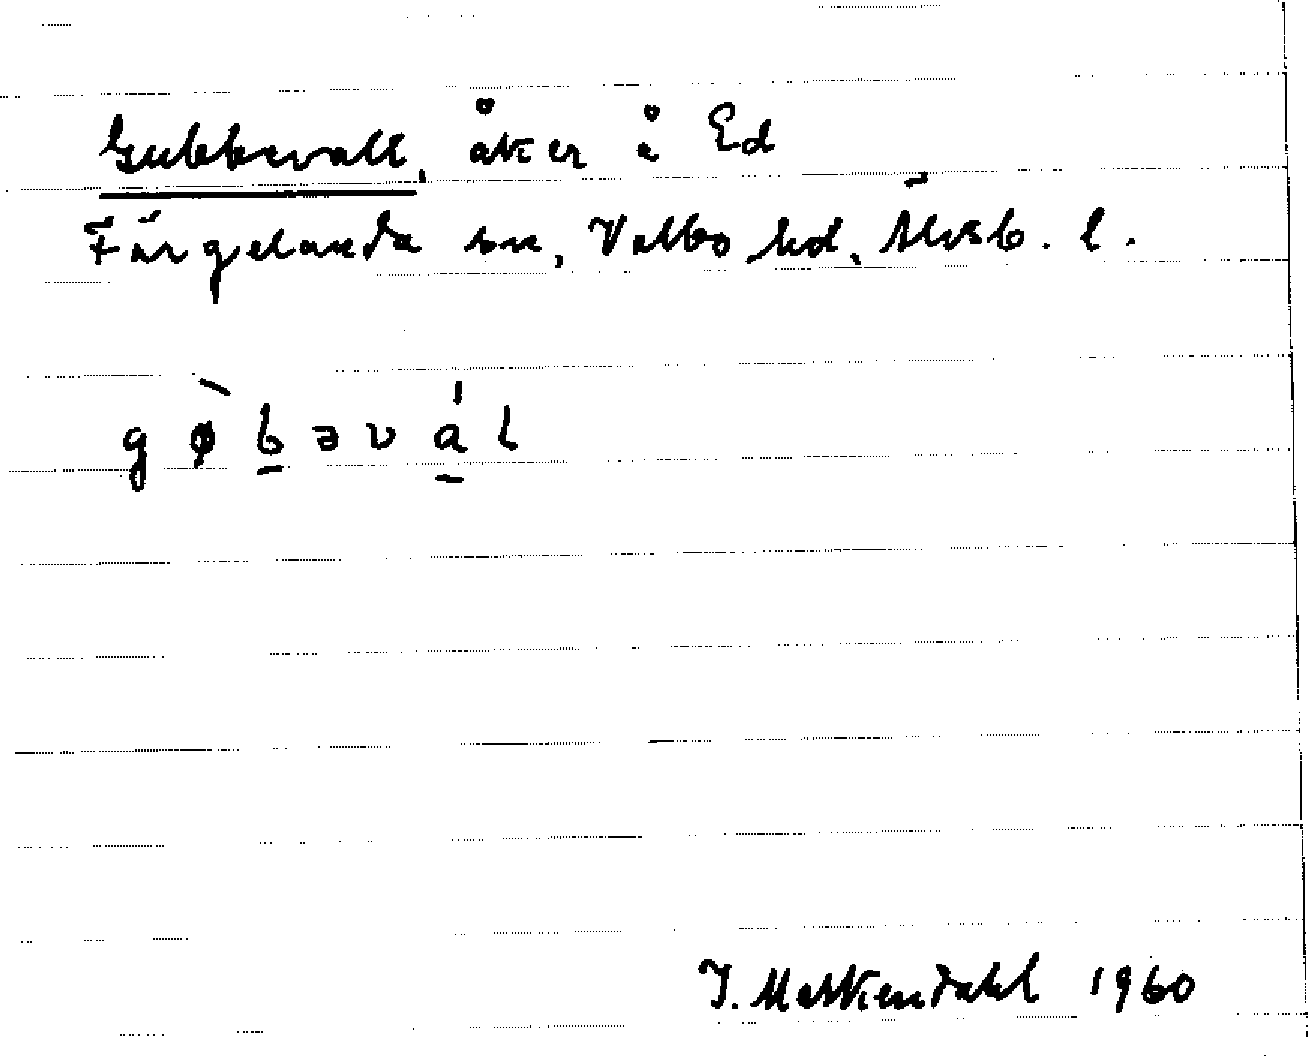 Gubbevall, åker å Ed
Färgelanda sn, Valbo hd, Älvsb. l.
gø̀b̠əvá̠l
1960